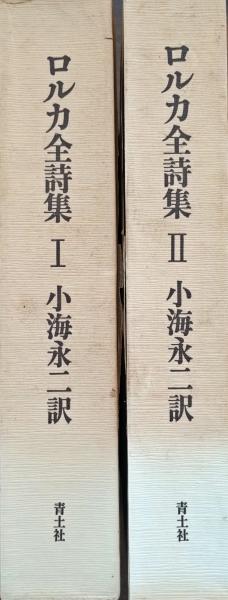 ロルカ全詩集 Ⅰ 小海永二訳
青土社
ロルカ全詩集 Ⅱ 小海永二訳
青土社